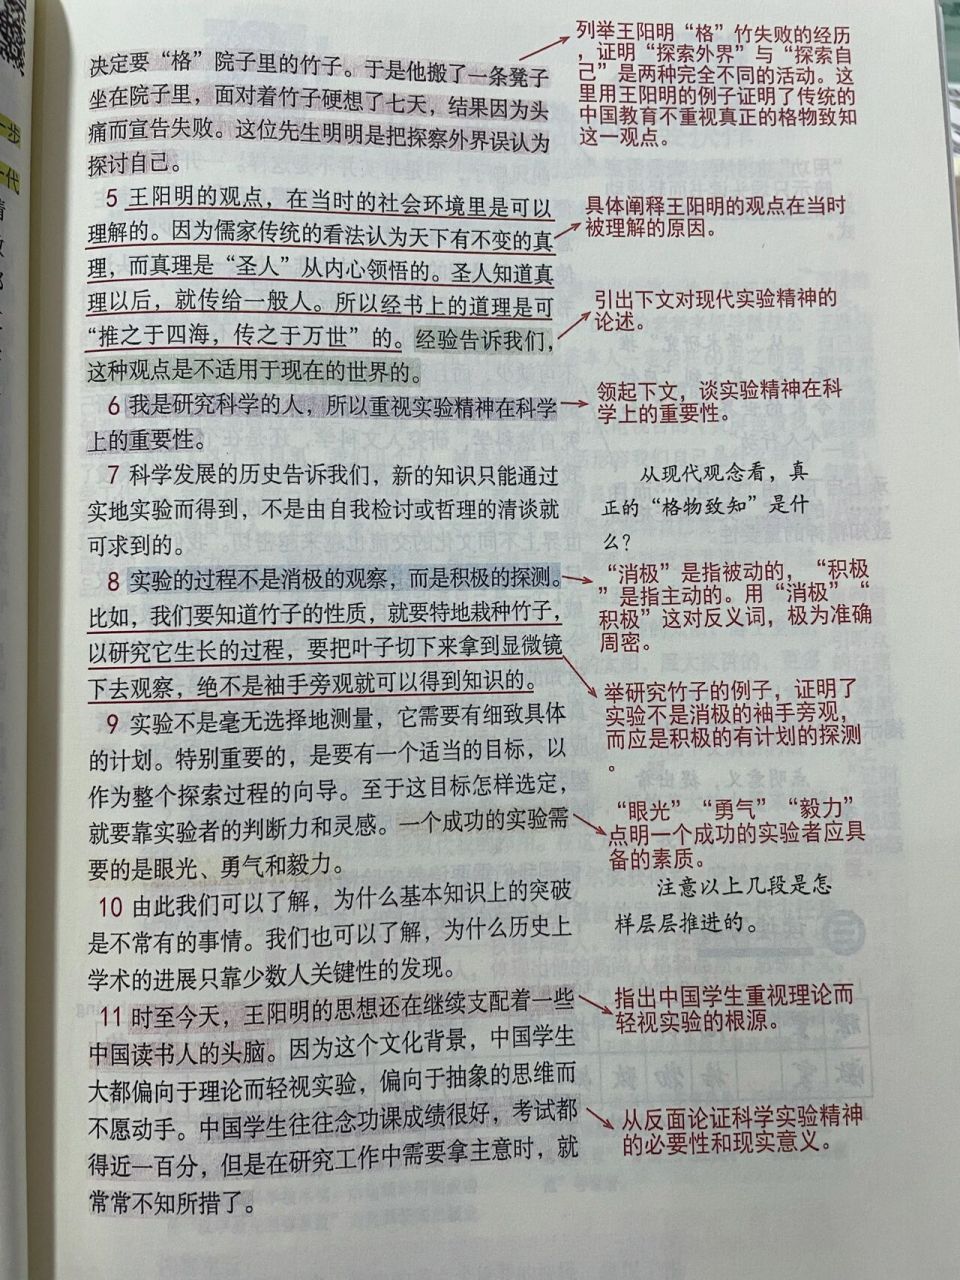 决定要“格”院子里的竹子。于是他搬了一条凳子
坐在院子里，面对着竹子硬想了七天，结果因为头
痛而宣告失败。这位先生明明是把探察外界误认为
探讨自己。
5 王阳明的观点，在当时的社会环境里是可以
理解的。因为儒家传统的看法认为天下有不变的真
理，而真理是“圣人”从内心领悟的。圣人知道真
理以后，就传给一般人。所以经书上的道理是可
“推之于四海，传之于万世”的。经验告诉我们，
这种观点是不适用于现在的世界的。
6 我是研究科学的人，所以重视实验精神在科学
上的重要性。
7 科学发展的历史告诉我们，新的知识只能通过
实地实验而得到，不是由自我检讨或哲理的清谈就
可求到的。
8 实验的过程不是消极的观察，而是积极的探测。
比如，我们要知道竹子的性质，就要特地栽种竹子，
以研究它生长的过程，要把叶子切下来拿到显微镜
下去观察，绝不是袖手旁观就可以得到知识的。
9 实验不是毫无选择地测量，它需要有细致具体
的计划。特别重要的，是要有一个适当的目标，以
作为整个探索过程的向导。至于这目标怎样选定，
就要靠实验者的判断力和灵感。一个成功的实验需
要的是眼光、勇气和毅力。
10 由此我们可以了解，为什么基本知识上的突破
是不常有的事情。我们也可以了解，为什么历史上
学术的进展只靠少数人关键性的发现。
11 时至今天，王阳明的思想还在继续支配着一些
中国读书人的头脑。因为这个文化背景，中国学生
大都偏向于理论而轻视实验，偏向于抽象的思维而
不愿动手。中国学生往往念功课成绩很好，考试都
得近一百分，但是在研究工作中需要拿主意时，就
常常不知所措了。
列举王阳明“格”竹失败的经历
，证明“探索外界”与“探索自
己”是两种完全不同的活动。这
里用王阳明的例子证明了传统的
中国教育不重视真正的格物致知
这一观点。
具体阐释王阳明的观点在当时
被理解的原因。
引出下文对现代实验精神的
论述。
领起下文，谈实验精神在科
学上的重要性。
从现代观念看，真
正的“格物致知”是什
么？
“消极”是指被动的，“积极
”是指主动的。用“消极”“
积极”这对反义词，极为准确
周密。
举研究竹子的例子，证明了
实验不是消极的袖手旁观，
而应是积极的有计划的探测
。
“眼光”“勇气”“毅力”
点明一个成功的实验者应具
备的素质。
注意以上几段是怎
样层层推进的。
指出中国学生重视理论而
轻视实验的根源。
从反面论证科学实验精神
的必要性和现实意义。